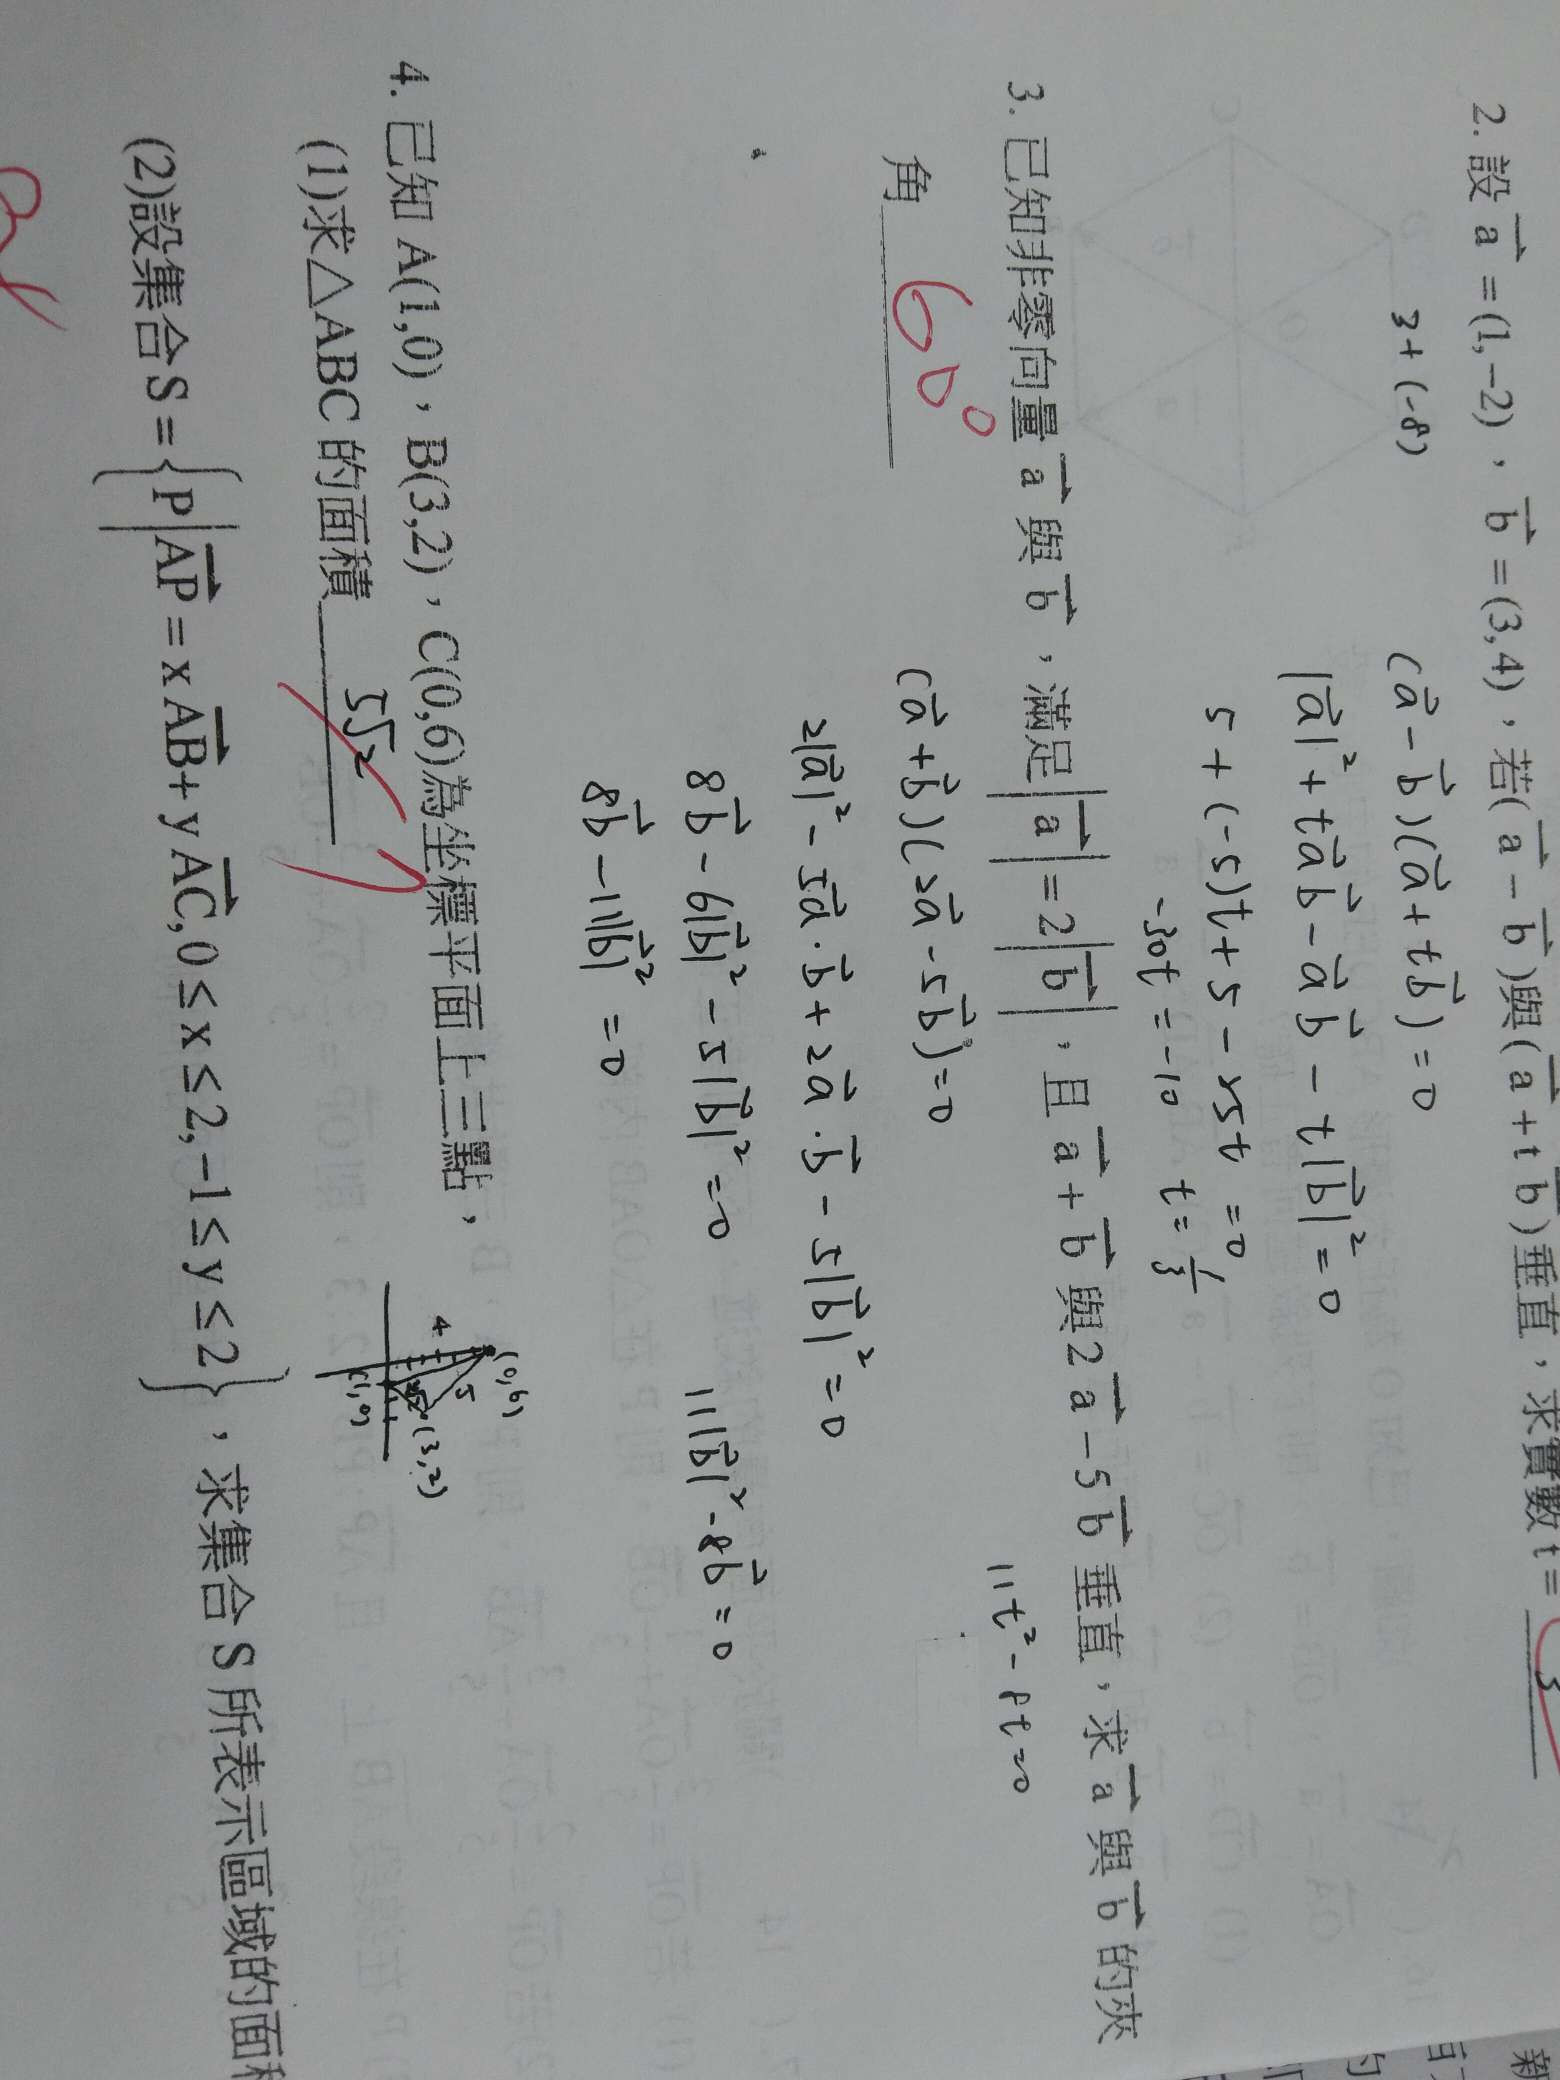 2. 設 a⃗ = (1, -2)，b⃗ = (3, 4)，若( a⃗ - b⃗ )與( a⃗ + t b⃗ )垂直，求實數 t =
3 + (-8)
(a⃗ - b⃗)(a⃗ + tb⃗) = 0
|a⃗|² + ta⃗b⃗ - a⃗b⃗ - t|b⃗|² = 0
5 + (-5)t + 5 - 25t = 0
-30t = -10 t = 1/3
3. 已知非零向量 a⃗ 與 b⃗，滿足 | a⃗ | = 2 | b⃗ |，且 a⃗ + b⃗ 與 2 a⃗ - 5 b⃗ 垂直，求 a⃗ 與 b⃗ 的夾
角 60°
(a⃗ + b⃗)(2a⃗ - 5b⃗) = 0
11t² - 8t = 0
2|a⃗|² - 5a⃗·b⃗ + 2a⃗·b⃗ - 5|b⃗|² = 0
8b⃗ - 6|b⃗|² - 5|b⃗|² = 0
11|b⃗|² - 8b⃗ = 0
8b⃗ - 11|b⃗|² = 0
4. 已知 A(1,0)，B(3,2)，C(0,6)為坐標平面上三點，
(0,6)
4
5
(3,2)
(1,0)
(1)求△ABC 的面積 5√2
7
(2)設集合 S = { P | AP⃗ = x AB⃗ + y AC⃗, 0 ≤ x ≤ 2, -1 ≤ y ≤ 2 }，求集合 S 所表示區域的面積